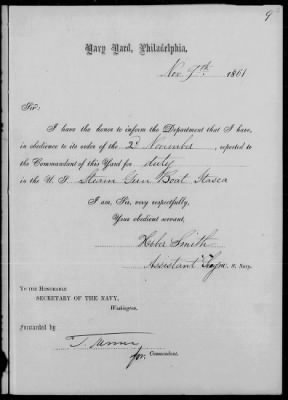 9
Navy Yard, Philadelphia.
Nov. 9th 1861
Sir:
I have the honor to inform the Department that I have,
in obedience to its order of the 2d November, reported to
the Commandant of this Yard for duty
in the U. S. Steam Gun Boat Itasca
I am, Sir, very respectfully,
Your obedient servant,
Heber Smith
Assistant Surgn U. S. Navy.
To the Honorable
SECRETARY OF THE NAVY,
Washington.
Forwarded by
T. Turner
for Commandant.